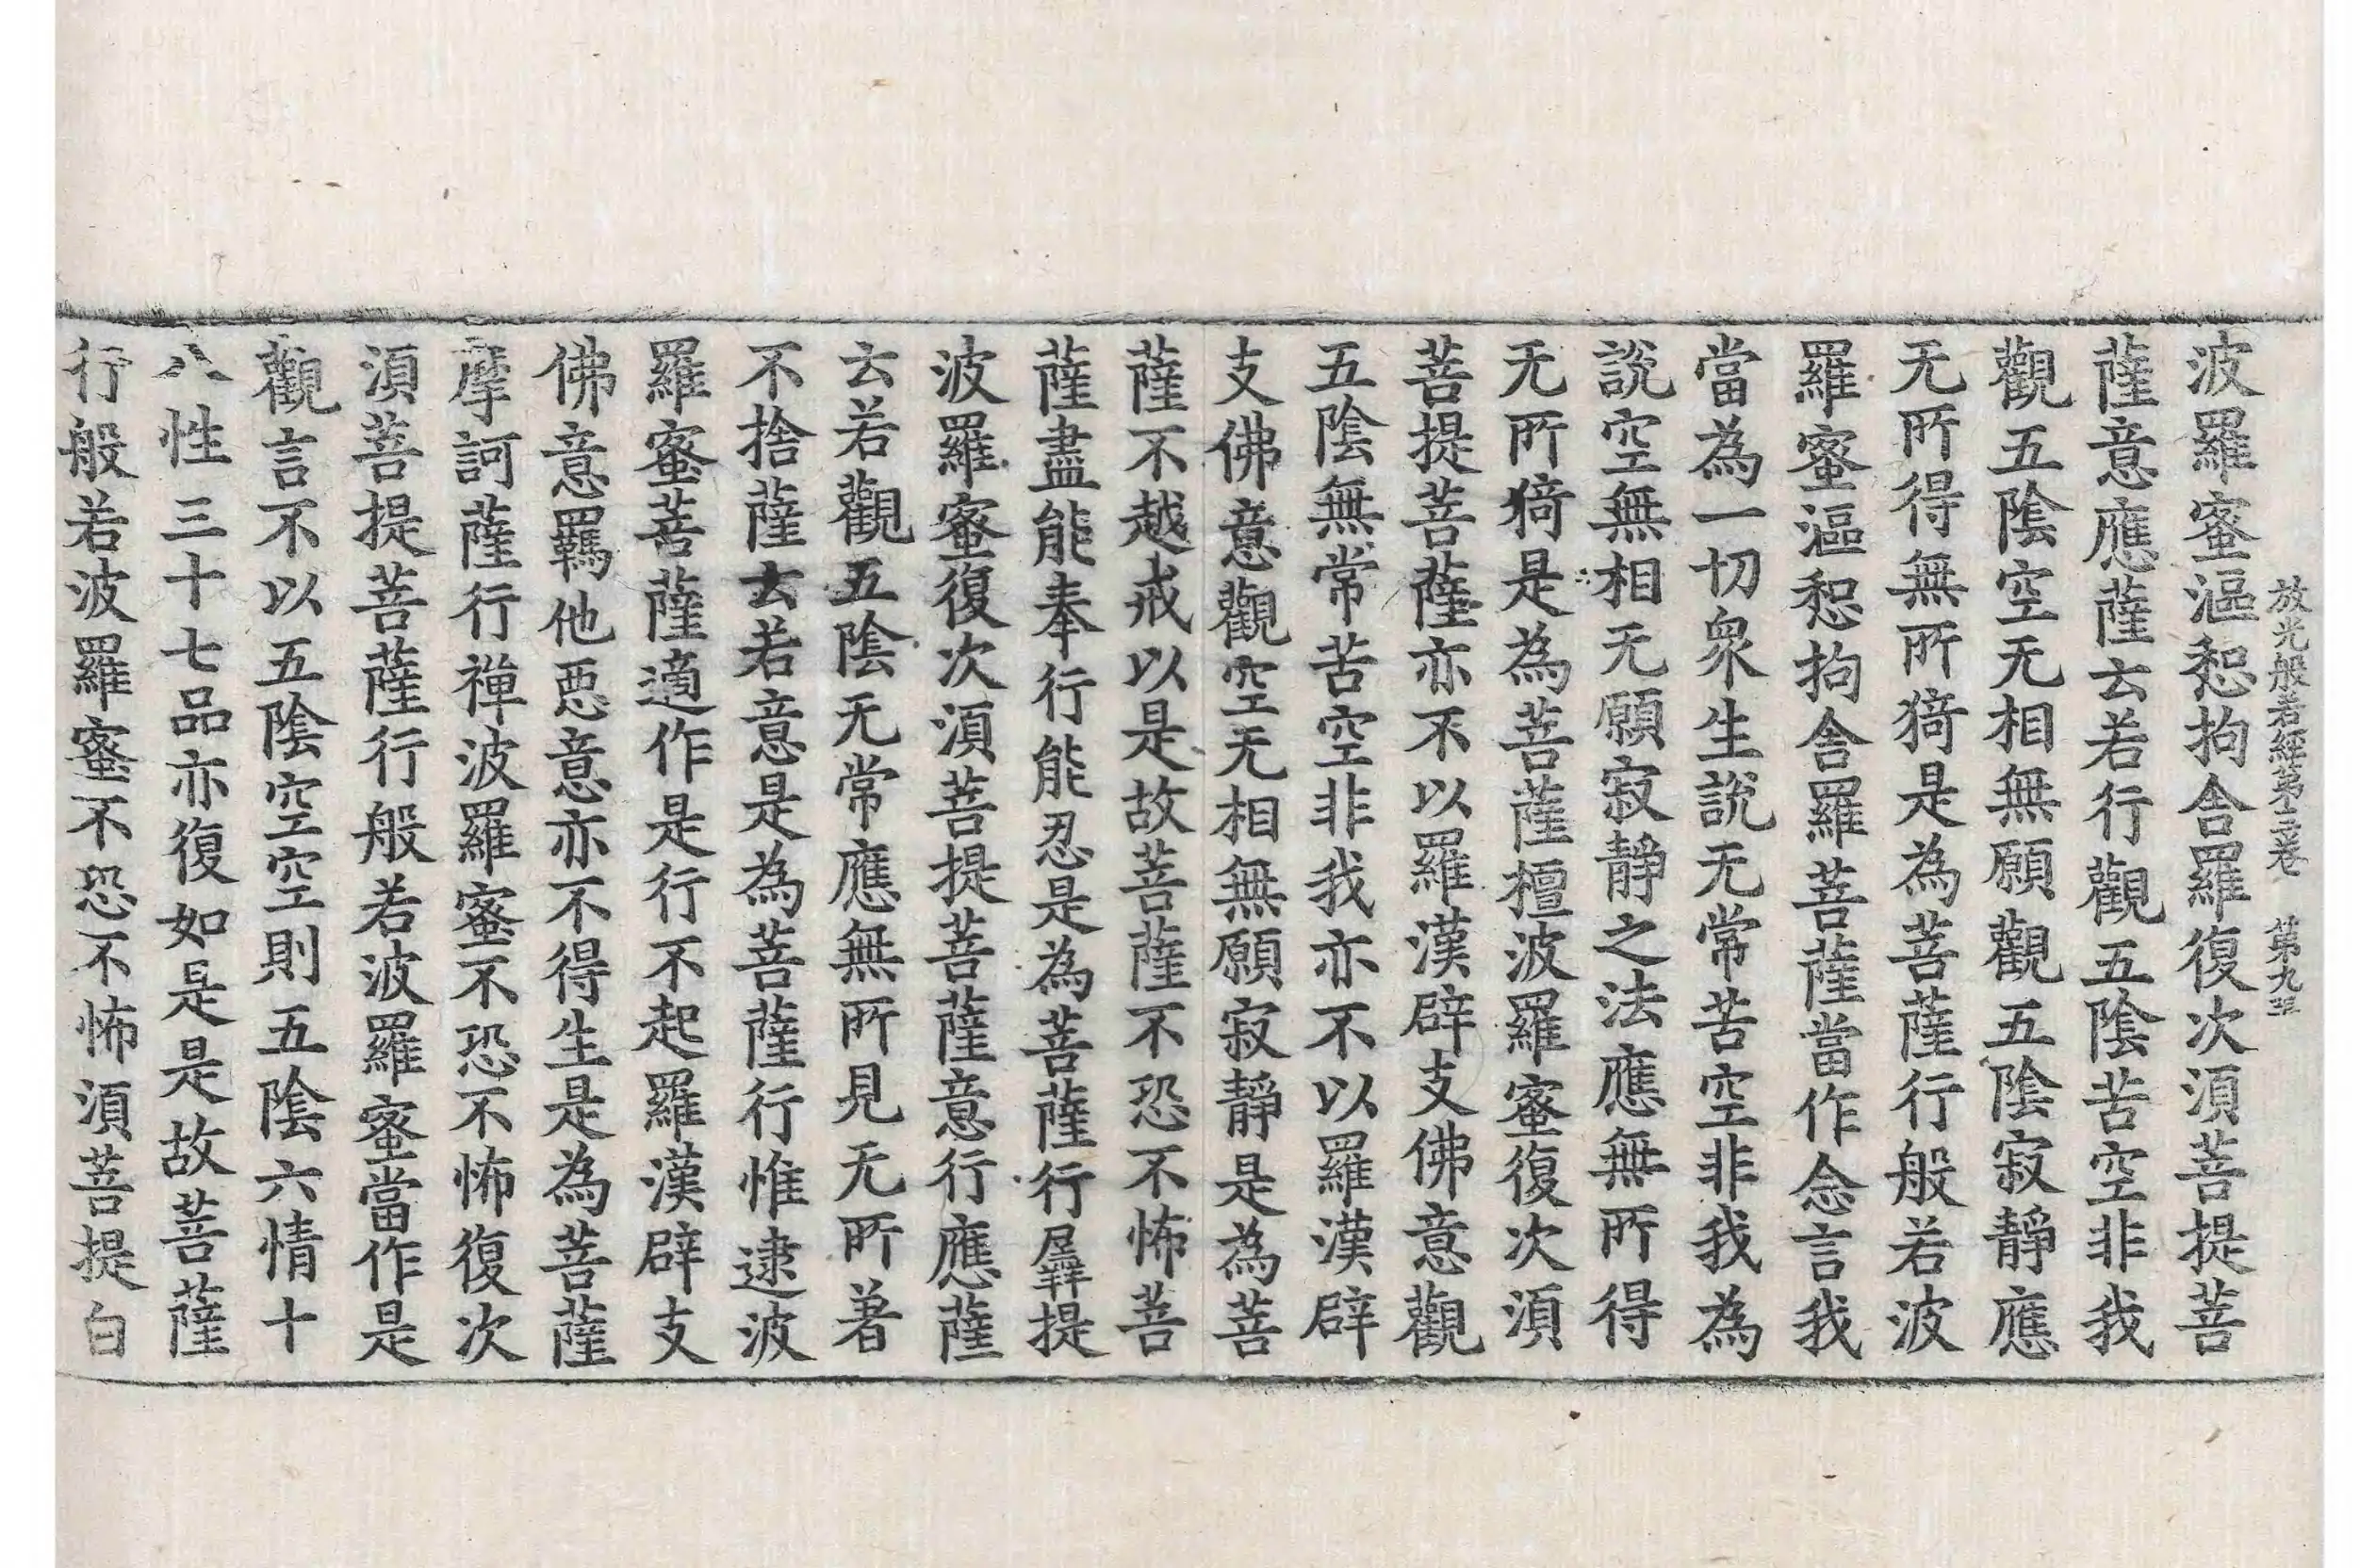 放光般若經第三卷 第九張
波羅蜜漚惒拘舍羅復次湏菩提菩
薩意應薩云若行觀五陰苦空非我
觀五陰空无相無願觀五陰寂靜應
无所得無所猗是為菩薩行般若波
羅蜜漚惒拘舍羅菩薩當作念言我
當為一切衆生說无常苦空非我為
說空無相无願寂靜之法應無所得
无所猗是為菩薩檀波羅蜜復次湏
菩提菩薩亦不以羅漢辟支佛意觀
五陰無常苦空非我亦不以羅漢辟
支佛意觀空无相無願寂靜是為菩
薩不越戒以是故菩薩不恐不怖菩
薩盡能奉行能忍是為菩薩行羼提
波羅蜜復次湏菩提菩薩意行應薩
云若觀五陰无常應無所見无所著
不捨薩云若意是為菩薩行惟逮波
羅蜜菩薩適作是行不起羅漢辟支
佛意羈他惡意亦不得生是為菩薩
摩訶薩行禪波羅蜜不恐不怖復次
湏菩提菩薩行般若波羅蜜當作是
觀言不以五陰空空則五陰六情十
八性三十七品亦復如是是故菩薩
行般若波羅蜜不恐不怖湏菩提白